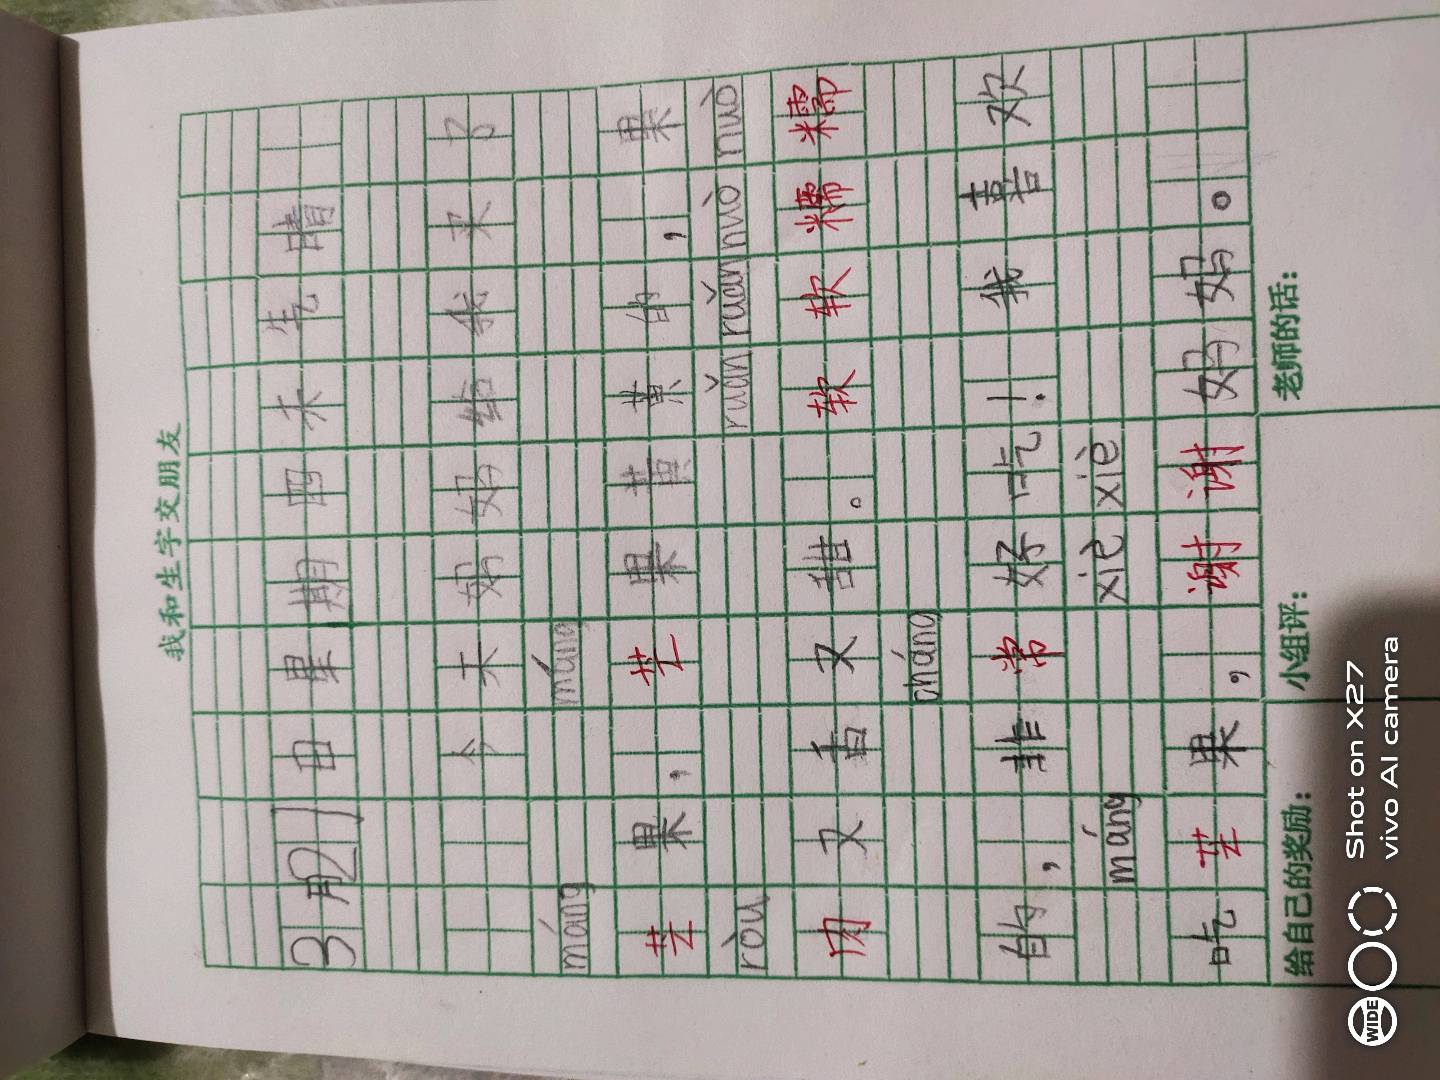 我和生字交朋友
3月21日星期四天气晴
今天妈妈给我买了
máng máng
芒果，芒果黄黄的，果
ròu ruǎn ruǎn nuò nuò
肉又香又甜。软软糯糯
cháng
的，非常好吃！我喜欢
máng xiè xiè
吃芒果，谢谢妈妈。
给自己的奖励： 小组评： 老师的话：
WIDE
Shot on X27
vivo AI camera